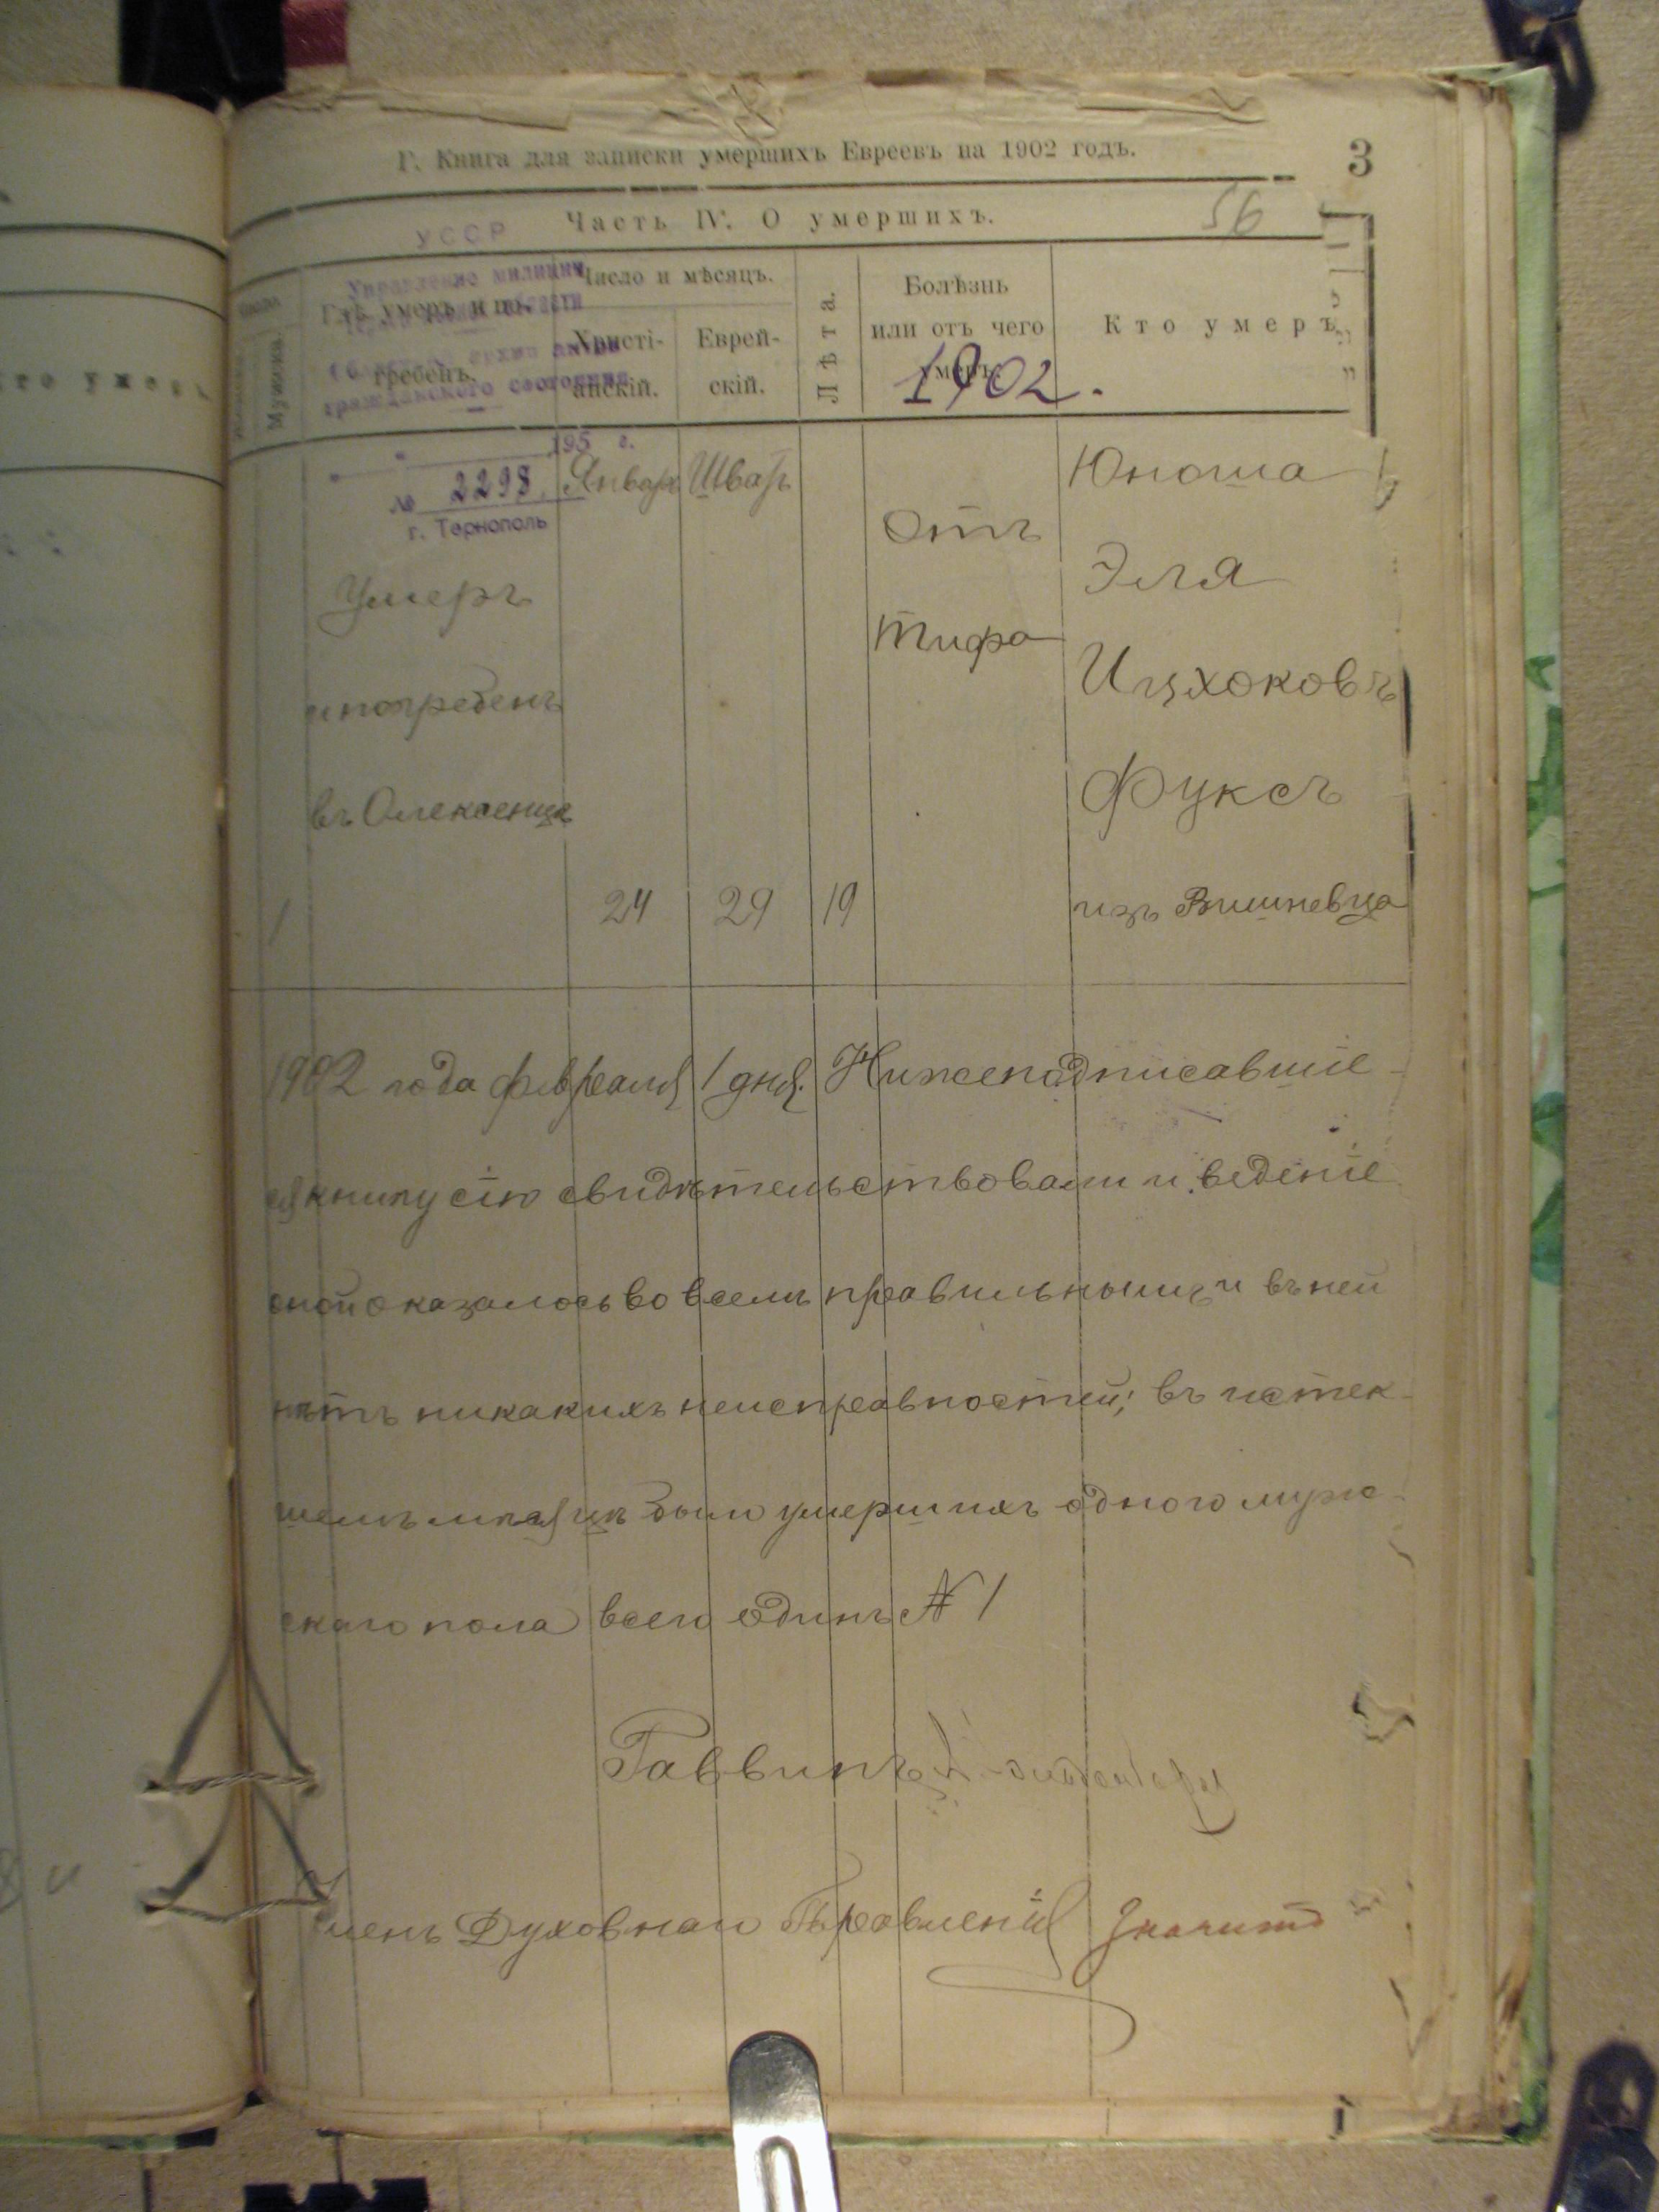 Г. Книга для записки умершихъ Евреевъ на 1902 годъ.
3
Часть IV. О умершихъ.
56
УССР
Управление милиции
гражданского состояния
195 г.
№ 2298
г. Тернополь
Мужска.
Гдѣ умеръ и по-
гребенъ.
Число и мѣсяцъ.
Христі-
анскій.
Еврей-
скій.
Лѣта.
Болѣзнь
или отъ чего
умеръ.
1902.
Кто умеръ
Январ Шват
Умеръ
и погребенъ
въ Олексенце
1
24
29
19
Отъ
тифа
Юноша
Эля
Ицхоковъ
Фуксъ
изъ Вишневца
1902 года февраля 1 дня. Нижеподписавшіе-
ся книгу сію свидѣтельствовали и ведѣніе
оной оказалось во всемъ правильнымъ и въ ней
нѣтъ никакихъ неисправностей; въ истек-
шемъ мѣсяцѣ было умершихъ одного муж-
скаго пола всего одинъ № 1
Раввинъ
Членъ Духовнаго Правленія